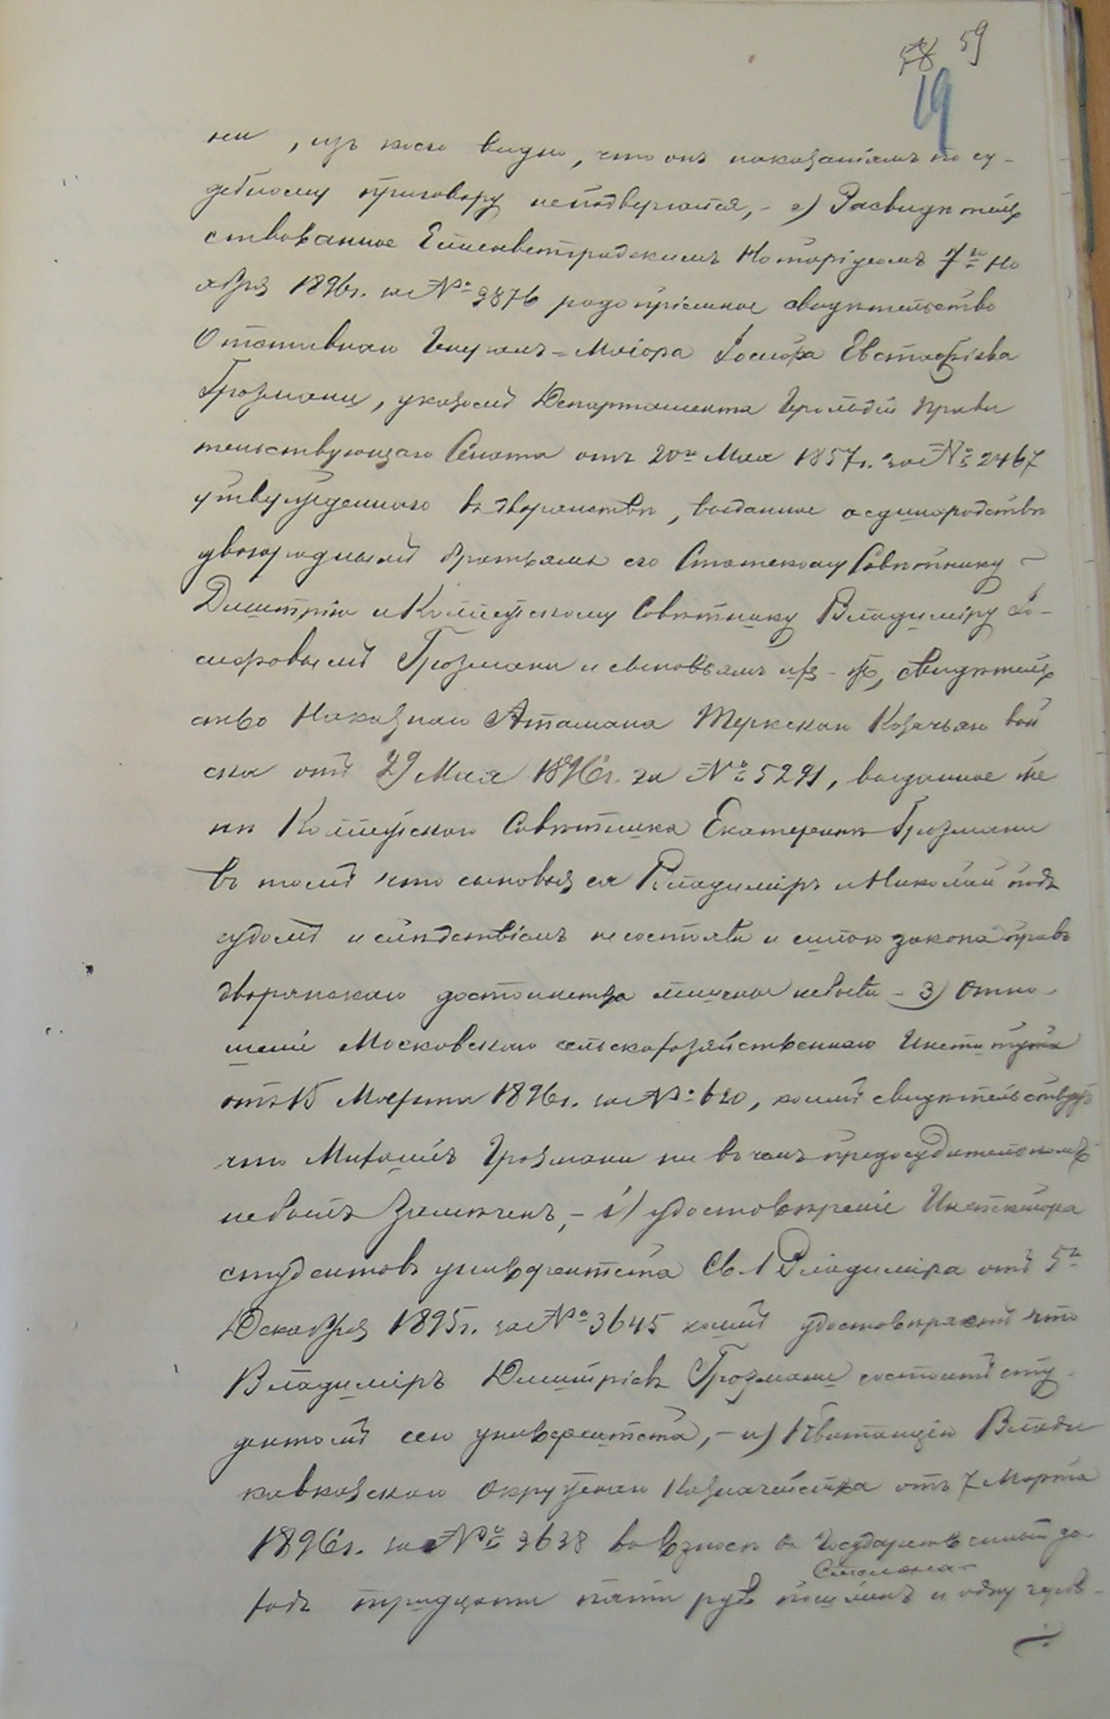 58 59
19
ни, изъ коего видно, что онъ наказаніямъ по су-
дебному приговору неподвергался, - е) Засвидѣтель
ствованное Елисаветградскимъ Нотаріусомъ 7го Но
ября 1896г. за № 9876 родопріемное свидѣтельство
Отставнаго Генералъ-Маіора Іосифа Евстафіева
Грозмани, указомъ Департамента Герольдіи Прави
тельствующаго Сената отъ 20го Мая 1857г. за № 2467
утвержденнаго въ дворянствѣ, выданное о единородствѣ
двоюроднымъ братьямъ его Статскому Совѣтнику
Димитрію и Коллежскому Совѣтнику Владиміру Іо-
сифовымъ Грозмани и сыновьямъ ихъ - ж, свидѣтель
ство Наказнаго Атамана Терскаго Козачьяго вой
ска отъ 29 Мая 1896г. за № 5291, выданное же
нѣ Коллежскаго Совѣтника Екатеринѣ Грозмани
въ томъ что сыновья ея Владиміръ и Николай подъ
судомъ и слѣдствіемъ не состояли и силою закона правъ
дворянскаго достоинства лишены небыли - з) Отно-
шеніе Московскаго сельскохозяйственнаго Института
отъ 15 Марта 1896г. за № 620, коимъ свидѣтельствуетъ
что Михаилъ Грозмани ни въ чемъ предосудительномъ
небылъ замѣченъ, - і) удостовѣреніе Инспектора
студентовъ университета Св. Владиміра отъ 5го
Декабря 1895г. за № 3645 коимъ удостовѣряетъ что
Владиміръ Димитріевъ Грозмани состоитъ сту-
дентомъ сего университета, - и) Квитанцію Влади
кавказскаго Окружнаго Казначейства отъ 7 Марта
1896г. за № 3638 во взносѣ въ Государственный до-
ходъ тридцати пяти руб. пошлинъ и одну